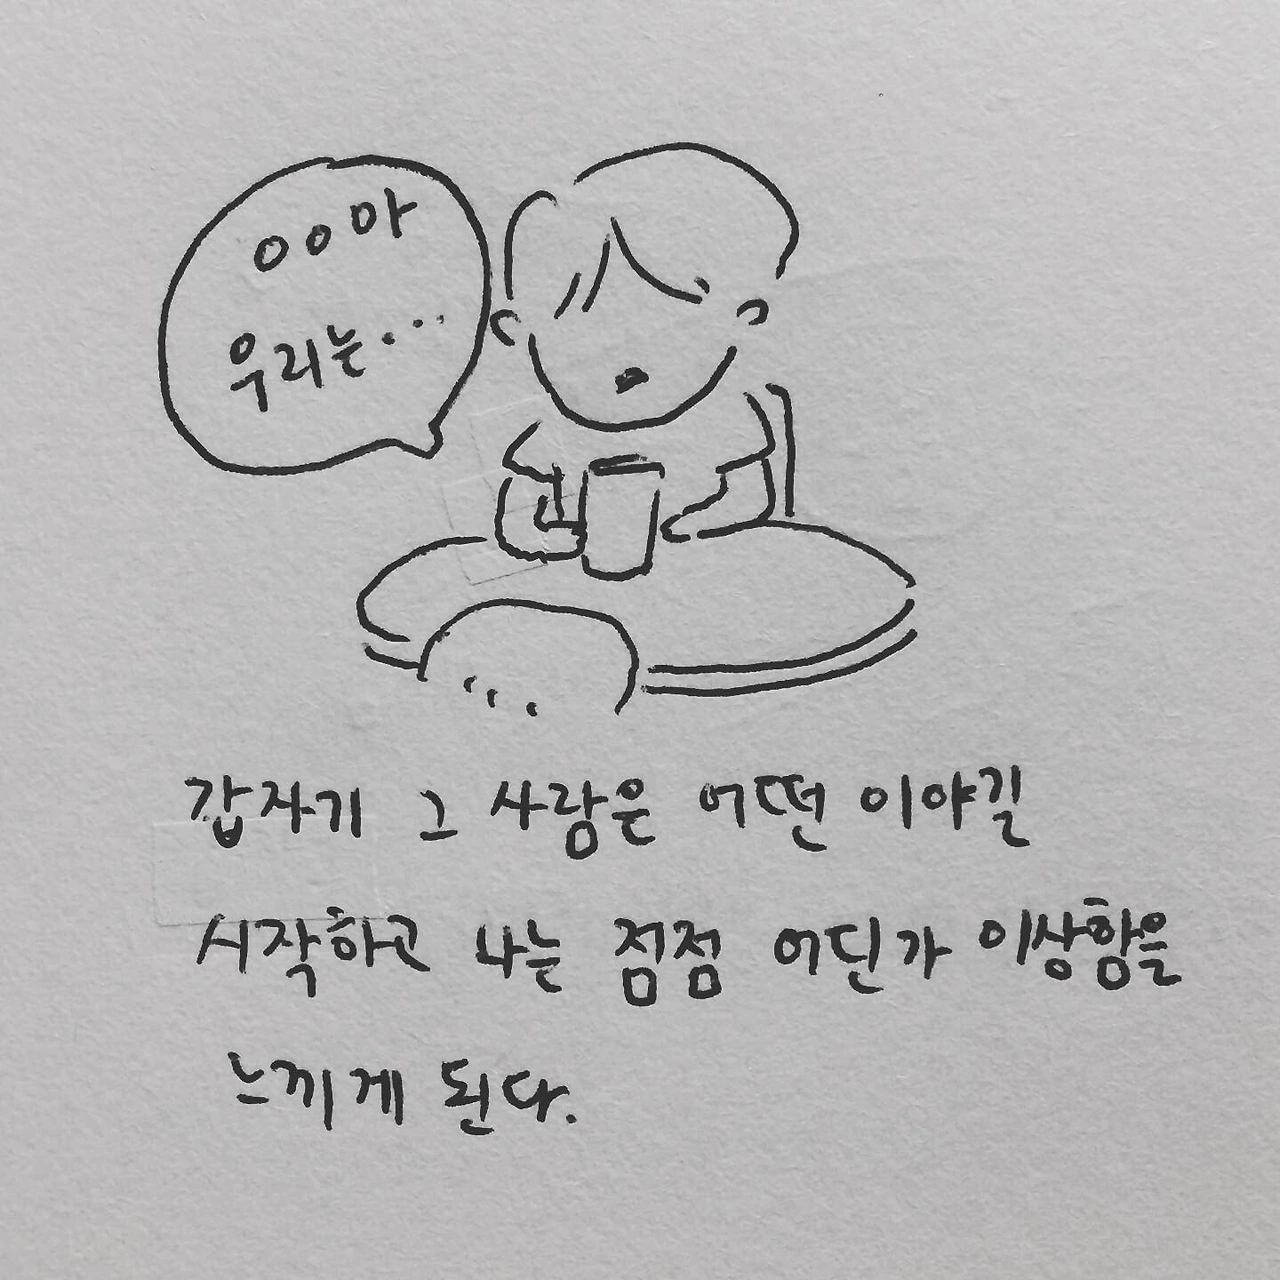 ㅇㅇ아
우리는...
...
갑자기 그 사람은 어떤 이야길
시작하고 나는 점점 어딘가 이상함을
느끼게 된다.